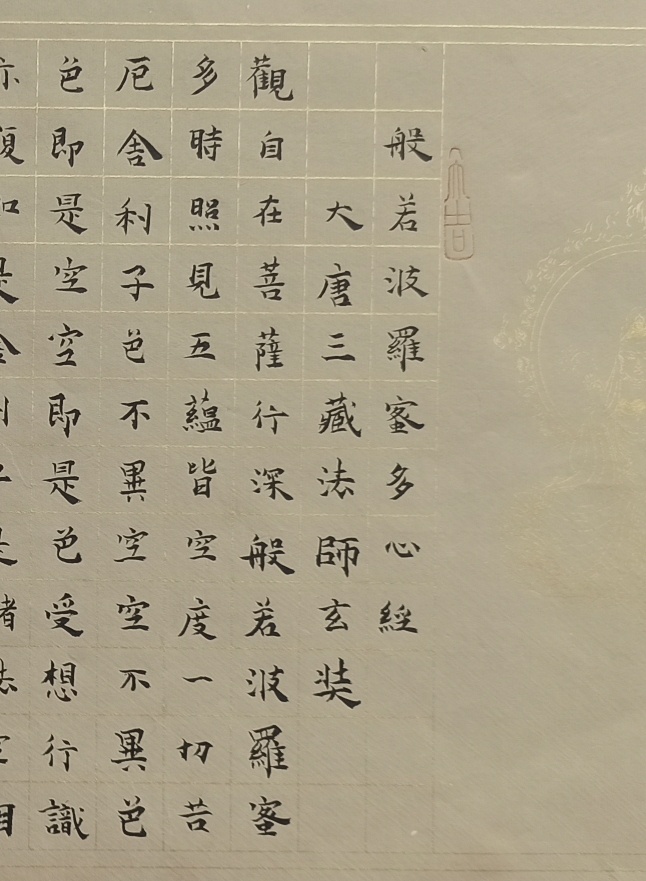 般若波羅蜜多心經
大唐三藏法師玄奘
觀自在菩薩行深般若波羅蜜
多時照見五蘊皆空度一切苦
厄舍利子色不異空空不異色
色即是空空即是色受想行識